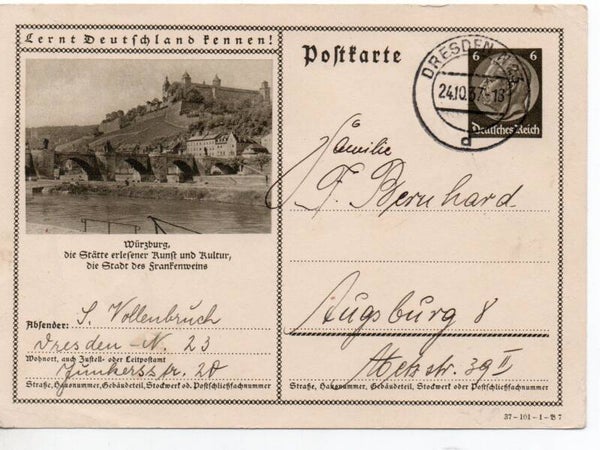 Lernt Deutschland kennen!
Würzburg,
die Stätte erlesener Kunst und Kultur,
die Stadt des Frankenweins
Absender: S. Vollenbruch
Dresden-N. 23
Wohnort, auch Zustell- oder Leitpostamt
Junkersstr. 20
Straße, Hausnummer, Gebäudeteil, Stockwerk od. Postschließfachnummer
Postkarte
DRESDEN
24.10.37.-13
d
6 6
Deutsches Reich
Familie
F. Bernhard
Augsburg 8
Metzstr. 39 II
Straße, Hausnummer, Gebäudeteil, Stockwerk oder Postschließfachnummer
37-101-1-B 7